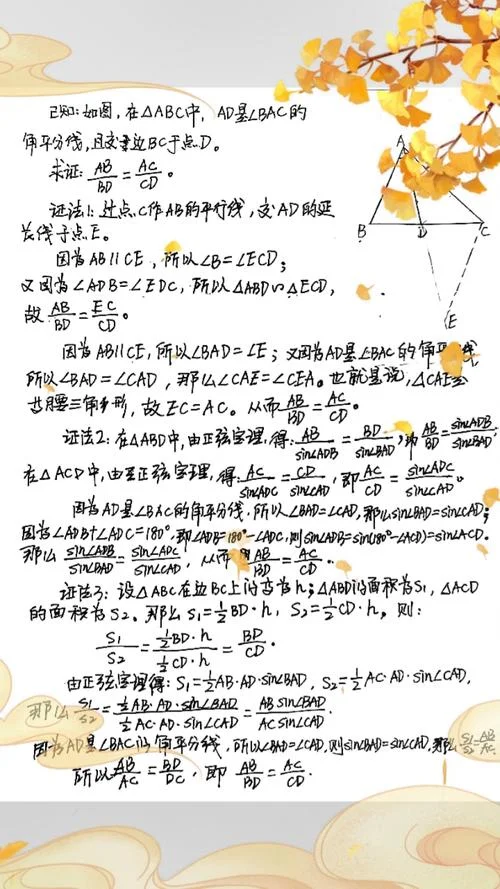 已知:如图,在△ABC中,AD是∠BAC的
角平分线,且交边BC于点D。
求证:AB/BD=AC/CD。
证法1:过点C作AB的平行线,交AD的延
长线于点E。
因为AB∥CE,所以∠B=∠ECD;
又因为∠ADB=∠EDC,所以△ABD∽△ECD,
故AB/BD=EC/CD。
A
B D C
E
因为AB∥CE,所以∠BAD=∠E;又因为AD是∠BAC的角平线
所以∠BAD=∠CAD,那么∠CAE=∠CEA。也就是说,△CAE是
等腰三角形,故EC=AC。从而AB/BD=AC/CD。
证法2:在△ABD中,由正弦定理,得:AB/sin∠ADB=BD/sin∠BAD,即AB/BD=sin∠ADB/sin∠BAD,
在△ACD中,由正弦定理,得:AC/sin∠ADC=CD/sin∠CAD,即AC/CD=sin∠ADC/sin∠CAD。
因为AD是∠BAC的角平分线,所以∠BAD=∠CAD,那么sin∠BAD=sin∠CAD;
因为∠ADB+∠ADC=180°,即∠ADB=180°-∠ADC,则sin∠ADB=sin(180°-∠ACD)=sin∠ACD.
那么sin∠ADB/sin∠BAD=sin∠ADC/sin∠CAD,从而AB/BD=AC/CD.
证法3:设△ABC在边BC上的高为h;△ABD的面积为S1,△ACD
的面积为S2。那么S1=1/2BD·h,S2=1/2CD·h,则:
S1/S2=(1/2BD·h)/(1/2CD·h)=BD/CD.
由正弦定理得:S1=1/2AB·AD·sin∠BAD,S2=1/2AC·AD·sin∠CAD,
那么S1/S2=(1/2AB·AD·sin∠BAD)/(1/2AC·AD·sin∠CAD)=ABsin∠BAD/ACsin∠CAD.
因为AD是∠BAC的角平分线,所以∠BAD=∠CAD,则sin∠BAD=sin∠CAD,那么S1/S2=AB/AC
所以AB/AC=BD/DC,即AB/BD=AC/CD.